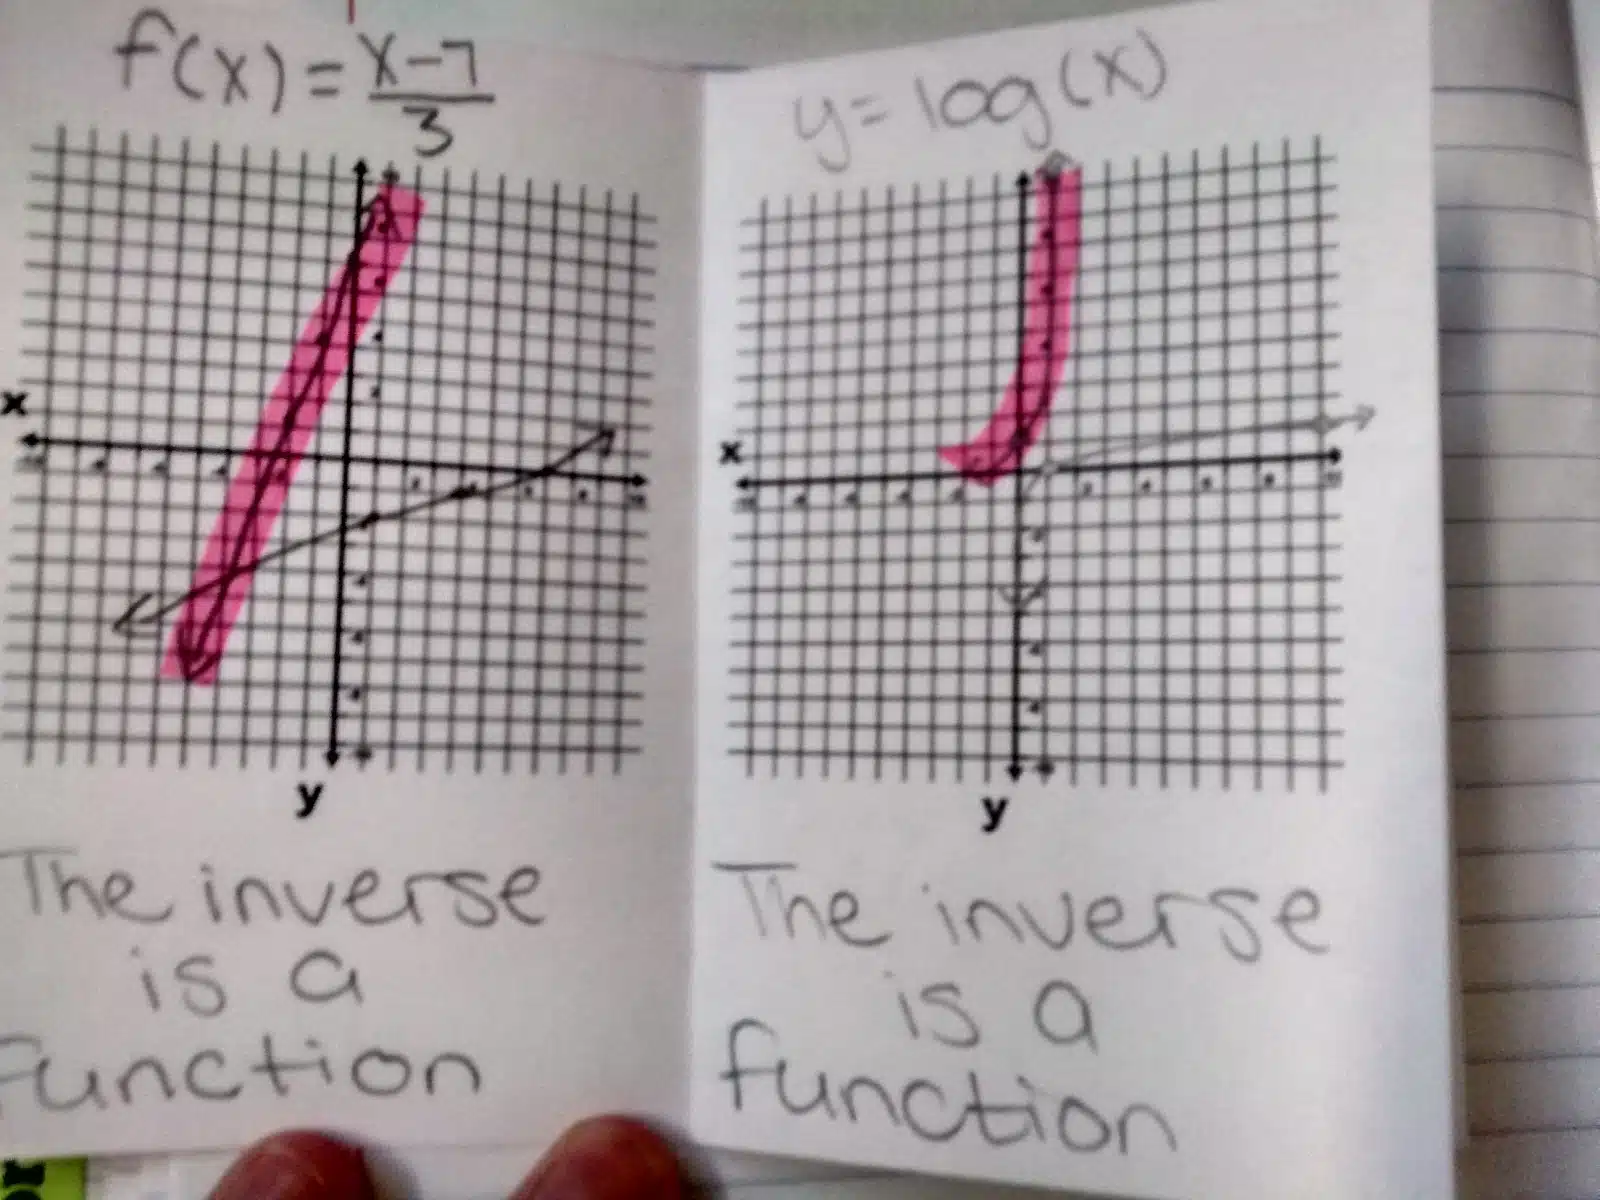 f(x) = x-7
3
x
y
The inverse
is a
function
y = log(x)
x
y
The inverse
is a
function